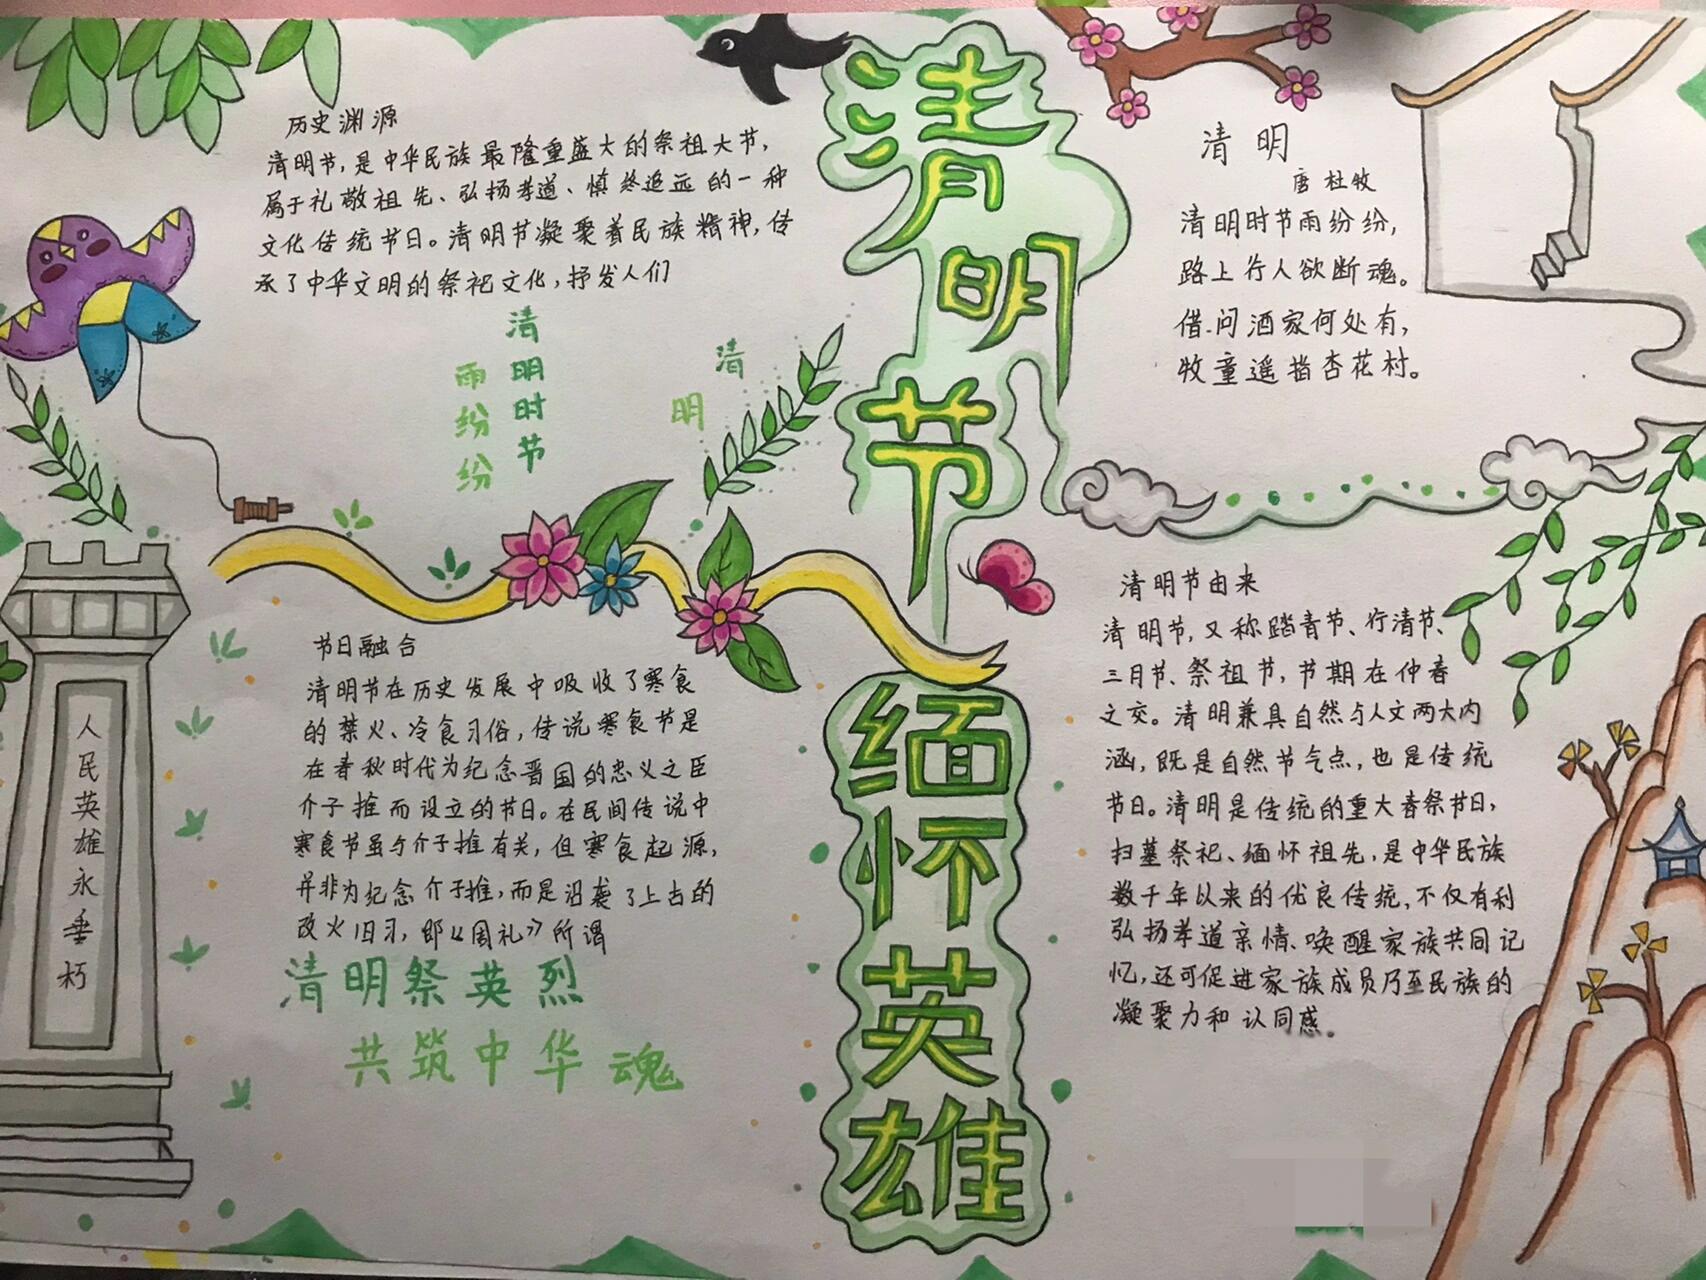 清明节
缅怀英雄
历史渊源
清明节,是中华民族最隆重盛大的祭祖大节,
属于礼敬祖先、弘扬孝道、慎终追远的一种
文化传统节日。清明节凝聚着民族精神,传
承了中华文明的祭祀文化,抒发人们
清明时节
雨纷纷
清
明
清 明
唐 杜牧
清明时节雨纷纷,
路上行人欲断魂。
借问酒家何处有,
牧童遥指杏花村。
节日融合
清明节在历史发展中吸收了寒食
的禁火、冷食习俗,传说寒食节是
在春秋时代为纪念晋国的忠义之臣
介子推而设立的节日。在民间传说中
寒食节虽与介子推有关,但寒食起源,
并非为纪念介子推,而是沿袭了上古的
改火旧习,即《周礼》所谓
清明祭英烈
共筑中华魂
人民英雄永垂朽
清明节由来
清明节,又称踏青节、行清节、
三月节、祭祖节,节期在仲春
之交。清明兼具自然与人文两大内
涵,既是自然节气点,也是传统
节日。清明是传统的重大春祭节日,
扫墓祭祀、缅怀祖先,是中华民族
数千年以来的优良传统,不仅有利
弘扬孝道亲情、唤醒家族共同记
忆,还可促进家族成员乃至民族的
凝聚力和认同感。